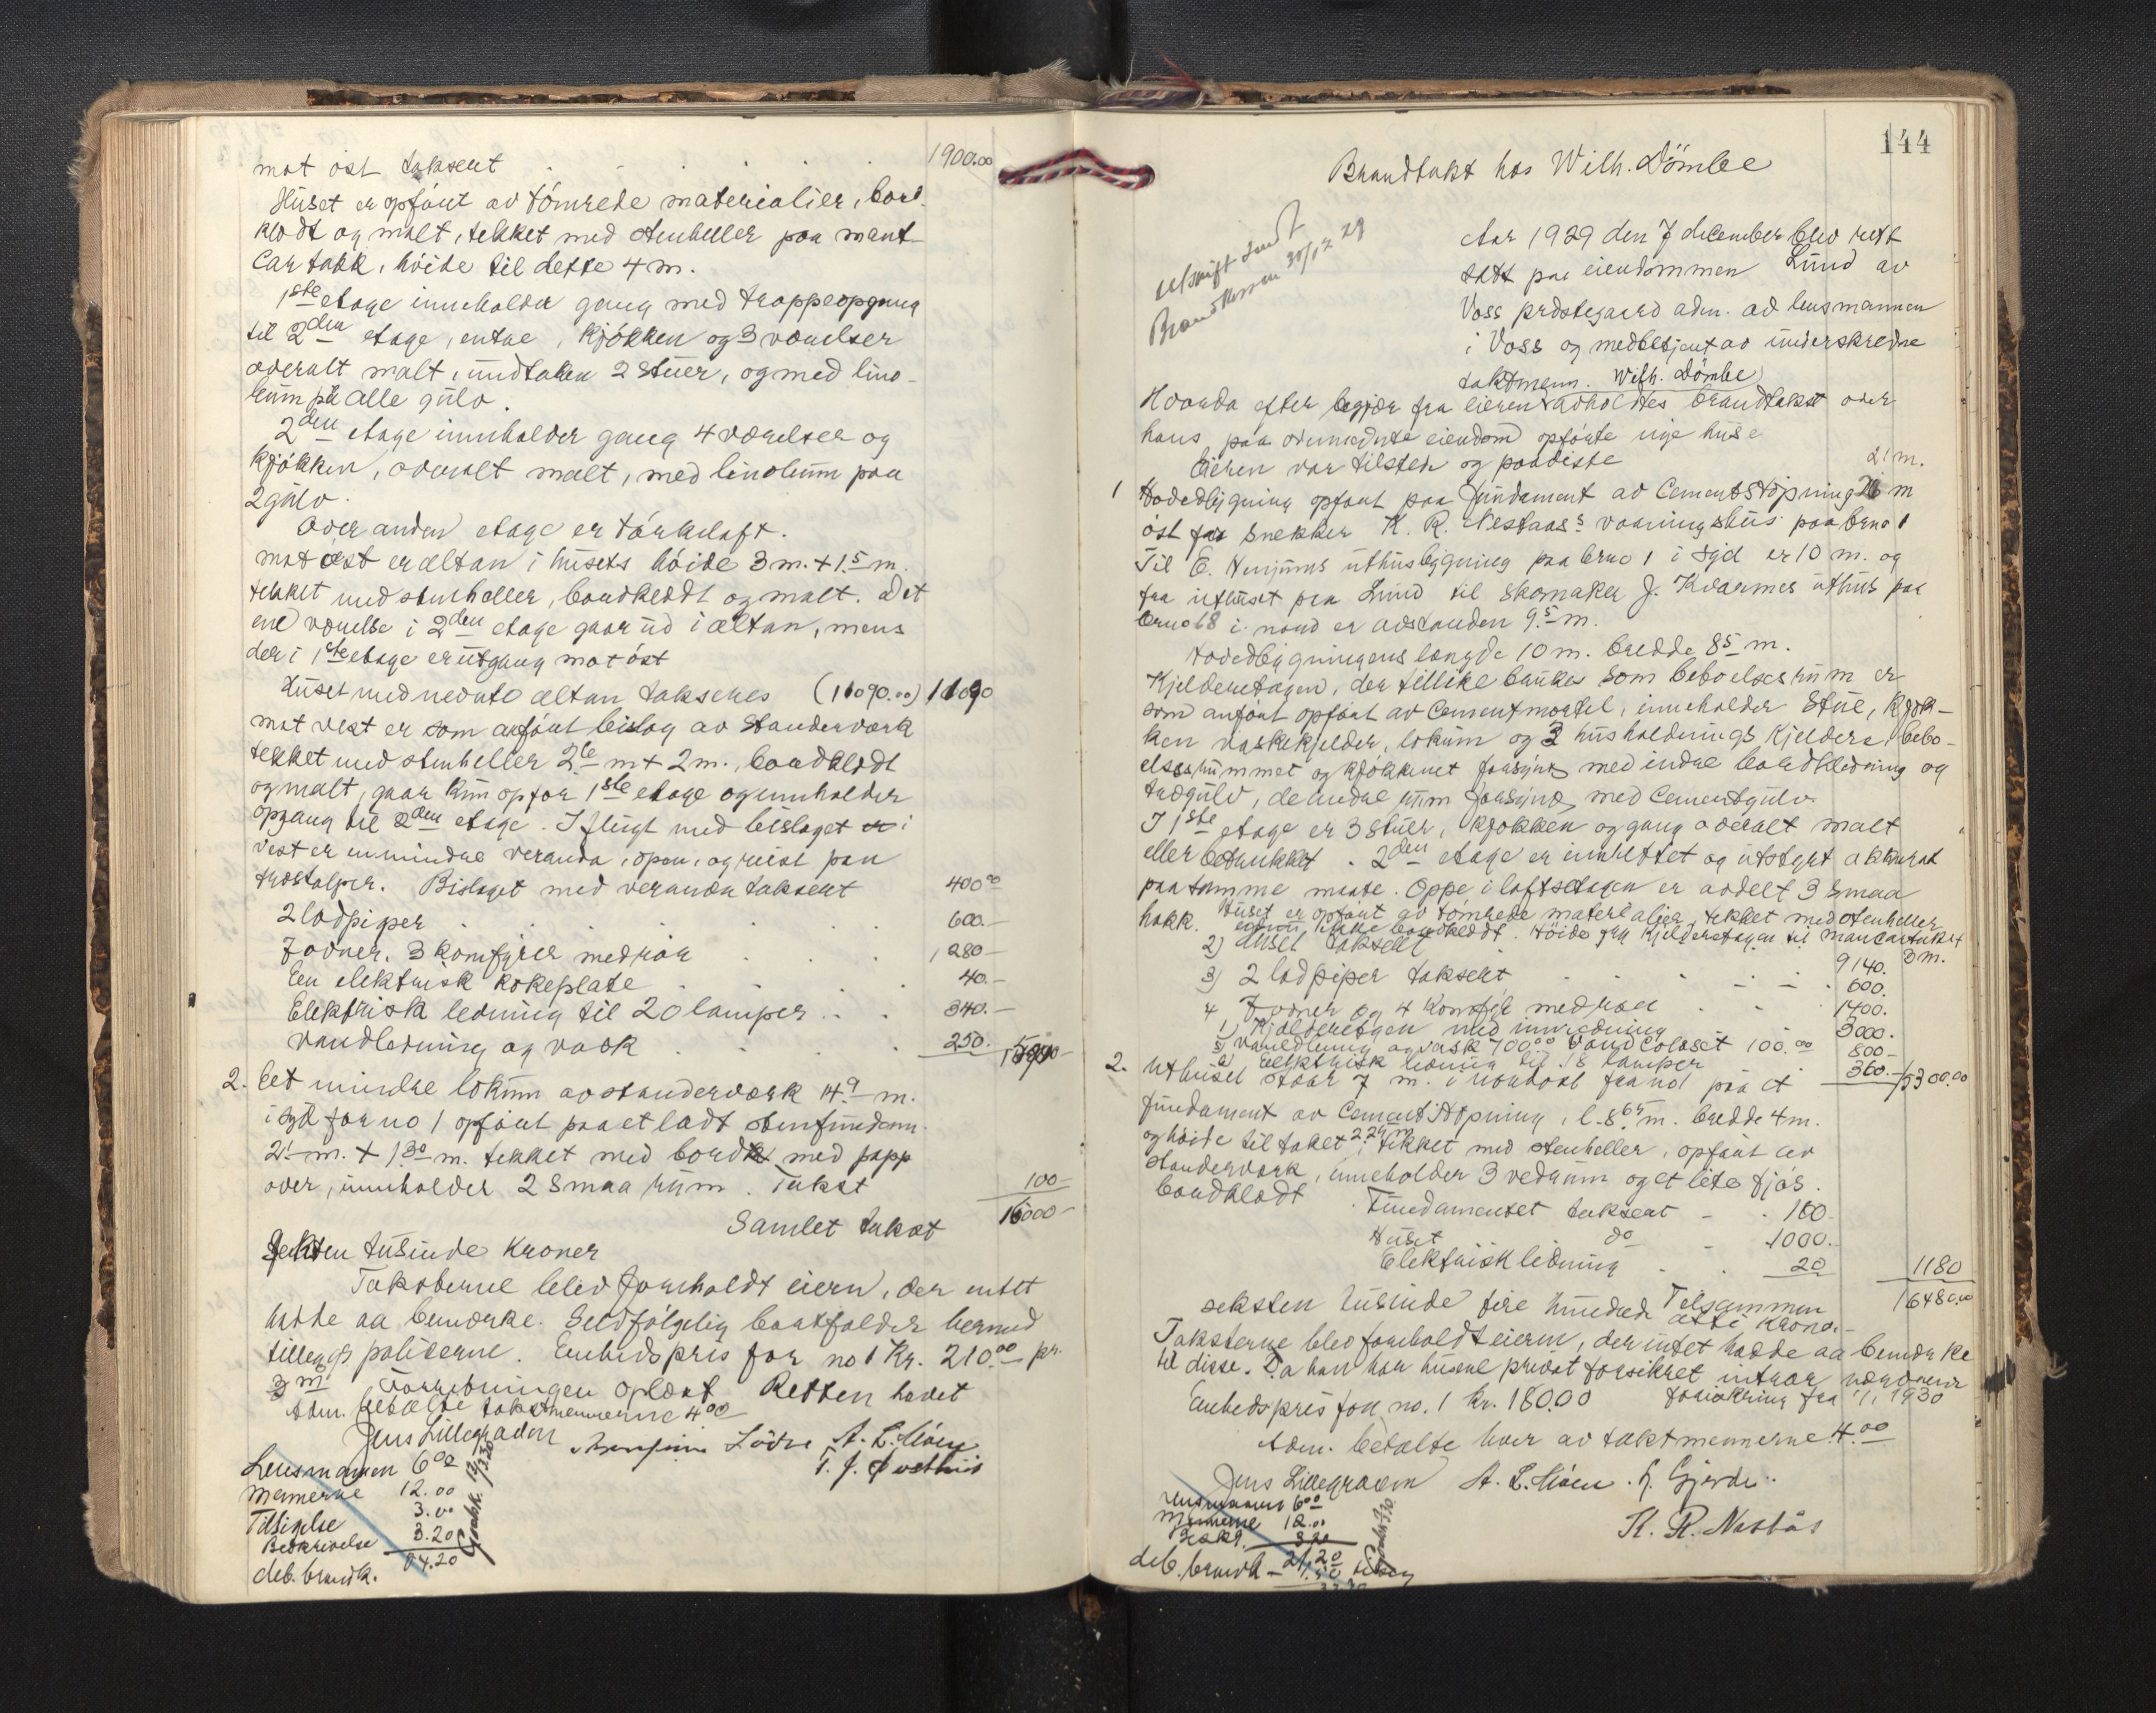 mot øst taksert 1900.00
Huset er opført av tømrede materialier, bord-
klædt og malt, tekket med stenheller paa mans-
ar takk, høide til dette 4 m.
1ste etage inneholder gang med trappeopgang
til 2den etage, entre, kjøkken og 3 værelser
overalt malt, undtaken 2 stuer, og med lino-
leum på alle gulv.
2den etage innholder gang 4 værelser og
kjøkken, overalt malt, med linoleum paa
2 gulv.
Over anden etage er tørkeloft.
mot øst er altan i husets høide 3 m. + 1.5 m.
tekket med stenheller, bordklædt og malt. Det
ene værelse i 2den etage gaar ud i altan, mens
der i 1ste etage er utgang mot øst
Huset med nævnte altan takseres (11090.00) 11090
mot vest er som anført bislag av standerværk
tekket med stenheller 2.6 m + 2 m., bordklædt
og malt, gaar kun op for 1ste etage og innholder
opgang til 2den etage. I flugt med bislaget i
vest er en mindre veranda, open, og reist paa
træstolper. Bislaget med veranda taksert 400.00
2 lodpiper 600.-
7 ovner, 3 komfyrer med rør 1280-
Een elektrisk kokeplate 40.-
Elektrisk ledning til 20 lamper 340.-
Vandledning og vask 250. 15900-
2. Eet mindre lokum av standerværk 14.9 m.
i syd for no 1 opført paa et lødt stenfundam.
2.1 m. + 1.30 m. tekket med bord med papp
over, innholder 2 smaa rum. Takst 100-
Samlet takst 16000-
Seksten tusinde Kroner
Taksterne blev forholdt eiern, der intet
hadde aa bemærke. Selvfølgelig bortfalder hermed
tillegs poliserne. Enhedspris for no 1 Kr. 210.00 pr.
m. Forretningen oplæst Retten hævet
Adm. betalte takstmennerne 4.00
Jens Lillegraven Lødve A. L. Móen
T. J. Østhus
Lensmannen 6.00
Mennerne 12.00
Tilsigelse 3.00
Beskrivelse 3.20
deb. brandk. 24.20
144
Brandtakst hos Wilh. Dömbe
utskrift sendt
Brandkassen 30/12 29
Aar 1929 den 7 december blev rett
satt paa eiendommen Lund av
Voss prestegaard adm. av lensmannen
i Voss og medbetjent av underskredne
takstmenn. Wilh. Dömbe
Hvorda efter begjær fra eieren avholdtes brandtakst over
hans paa ovennevnte eiendom opførte nye huse
Eieren var tilstede og paaviste
21 m.
1 Hovedbygning opført paa fundament av Cementstøpning m
øst for Snekker K. R. Nestaas's vaaningshus paa brno 1
Til E. Henjums uthusbygning paa brno 1 i syd er 10 m. og
fra uthuset paa Lund til Skomaker J. Kvarmes uthus paa
brno 68 i nord er avstanden 9.5 m.
Hovedbygningens længde 10 m. bredde 8.5 m.
Kjelderetagen, der tillike brukes som beboelsesrum er
som anført opført av Cementmørtel, inneholder Stue, Kjøk-
ken vaskekjelder, lokum og 3 husholdnings Kjeldere, bebo-
elsesrummet og kjøkkenet forsynes med indre bordklædning og
trægulv, de andre rum forsynes med Cementgulv.
I 1ste etage er 3 stuer, kjøkken og gang overalt malt
eller betrukket. 2den etage er innrettet og utstyrt akkurat
paa samme maate. Oppe i loftsetagen er avdelt 3 smaa
hakk. Huset er opført av tømrede materialier, tekket med stenheller
endnu ikke bordklædt. Høide fra Kjelderetagen til Mansartaket
3 m.
2) Huset taksert 9140.
3) 2 lodpiper taksert 600.
4 7 ovner og 4 Komfyr med rør 1400.
1) Kjelderetagen med innredning 3000.
5) Vandledning og vask 700.00 Vandcloset 100.00 800-
6) Elektrisk ledning til 18 lamper 360.- 15300.00
2. Uthuset staar 7 m. i nordost fra no 1 paa et
fundament av Cementstøpning, l. 8.65 m. bredde 4 m.
og høide til taket 2.24 m, tekket med stenheller, opført av
standerværk, inneholder 3 vedrum og et lite fjøs.
bordklædt. Fundamentet taksert - 160-
Huset do - 1000.-
Elektrisk ledning 20 1180
Tilsammen 16480.00
seksten tusinde fire hundrede åtti kroner-
Taksterne blev forholdt eieren, der intet hadde aa bemærke
til disse. Da han har husene privat forsikret intrær nærværende
forsikring fra 1/1 1930
Enhedspris for no. 1 Kr. 180.00
Adm. betalte hver av takstmennerne 4.00
Jens Lillegraven A. L. Móen. Gjerde..
K. R. Nestås
Lensmannen 6.00
Mennerne 12.00
Beskr. 3.20
deb. brandk - 21.20